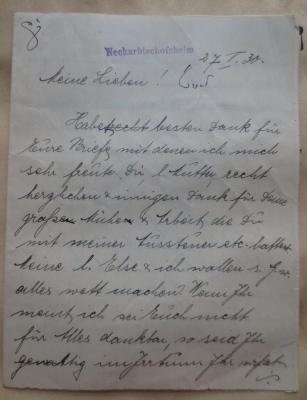 8
Neckarbischofsheim
27. I. 30.
Meine Lieben!
Habt recht besten Dank für
Eure Briefe mit denen ich mich
sehr freute. Dir, l. Mutter, recht
herzlichen & innigen Dank für Deine
großen Mühen & Arbeit, die Du
mit meiner Aussteuer etc. hattest.
Meine l. Else & ich wollen s. G. w.
alles wett machen! Wenn Ihr
meint ich sei Euch nicht
für Alles dankbar, so seid Ihr
gewaltig im Irrtum Ihr